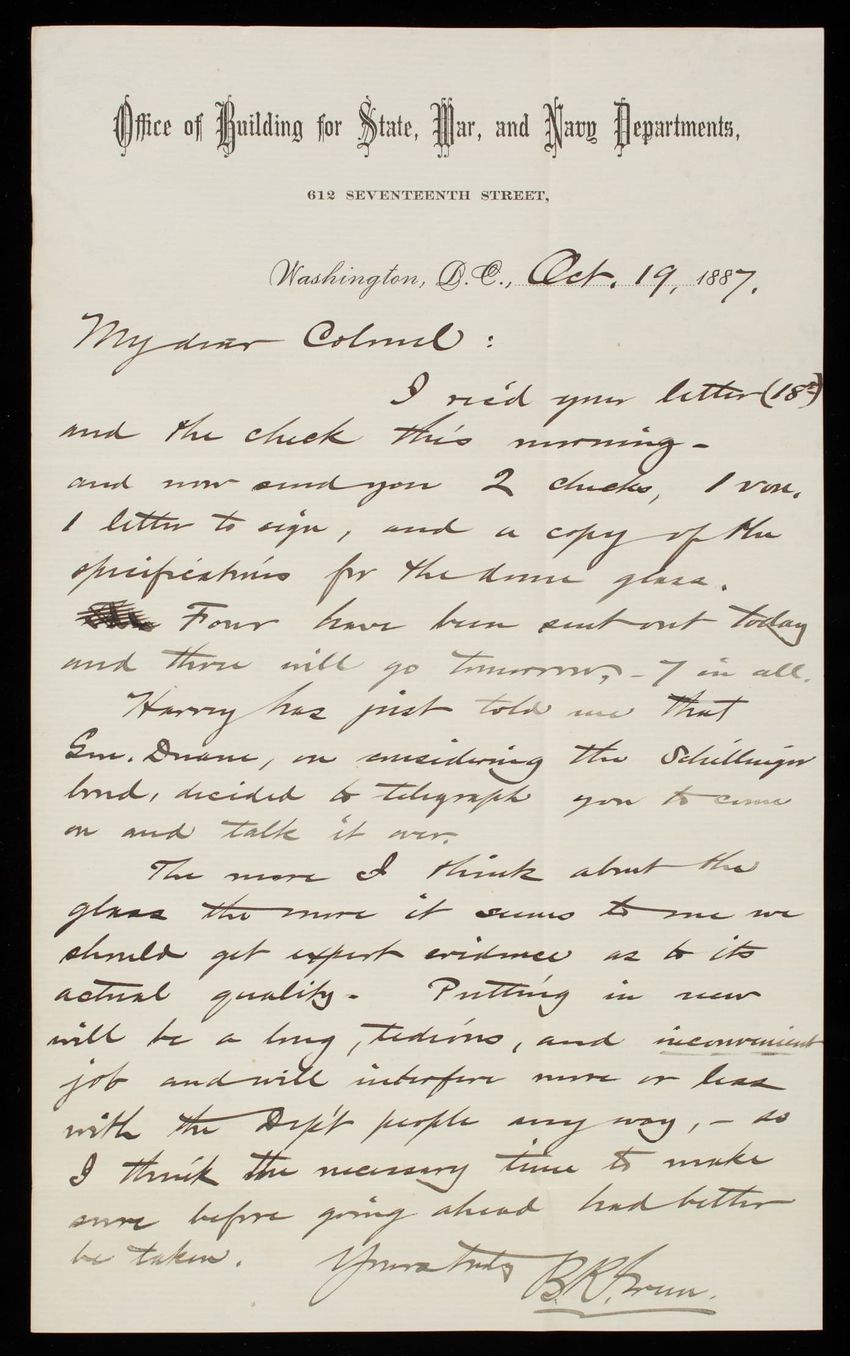 Office of Building for State, War, and Navy Departments,
612 SEVENTEENTH STREET,
Washington, D.C., Oct. 19, 1887.
My dear Colonel :
I rec'd your letter (18th)
and the check this morning -
and now send you 2 checks, 1 vou.
1 letter to sign, and a copy of the
specifications for the dome glass.
Four have been sent out today
and three will go tomorrow, - 7 in all.
Harry has just told me that
Gen. Duane, on considering the Schillinger
bond, decided to telegraph you to come
on and talk it over.
The more I think about the
glass the more it seems to me we
should get expert evidence as to its
actual quality - Putting in new
will be a long, tedious, and inconvenient
job and will interfere more or less
with the Dep't people any way, - so
I think the necessary time to make
sure before going ahead had better
be taken. Yours truly
B.R. Green.